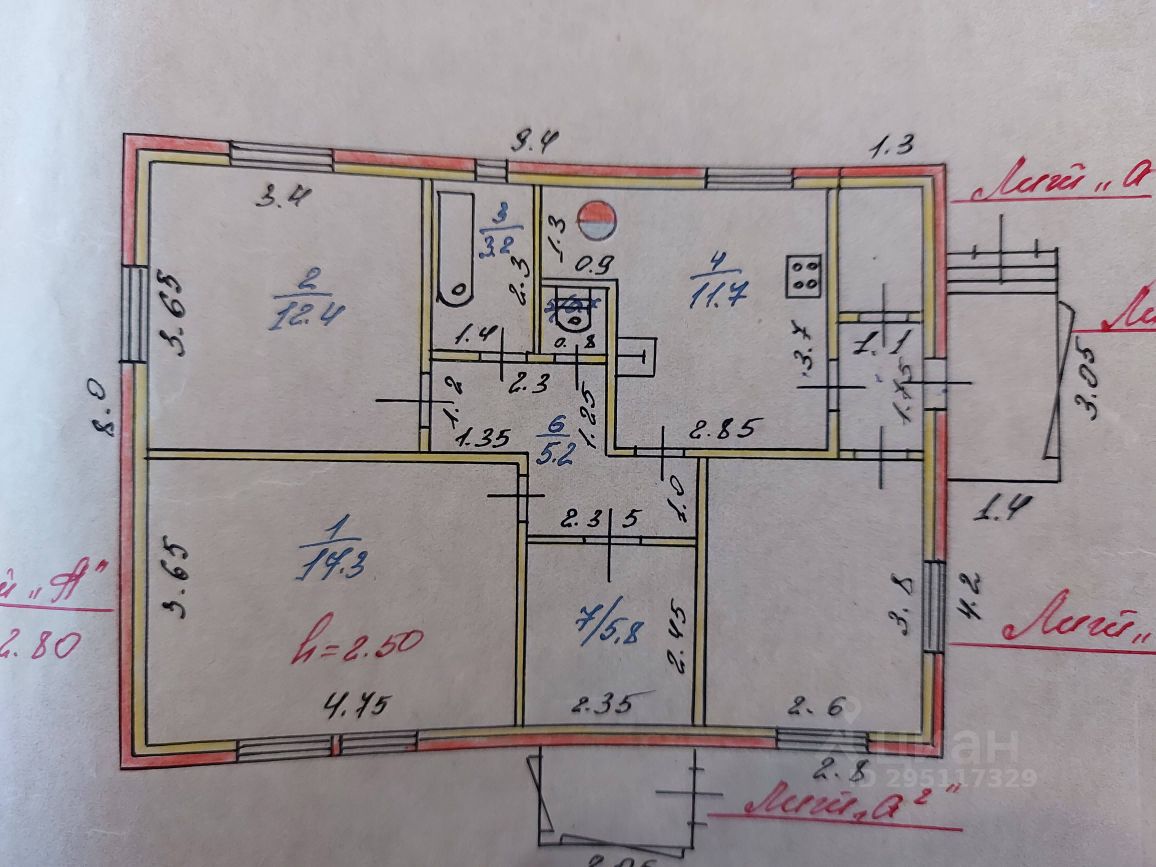 9.4
1.3
3.4
3
3.2
1.3
0.9
2.3
4
11.7
2
12.4
3.65
1.4
0.8
3.7
1.1
1.75
3.05
8.0
1.2
2.3
1.25
1.35
6
5.2
2.85
1.0
2.35
1.4
1
17.3
3.65
"А"
2.80
h=2.50
7/5,8
2.45
3.8
4.2
4.75
2.35
2.6
2.8
циан
ID 295117329
"а²"